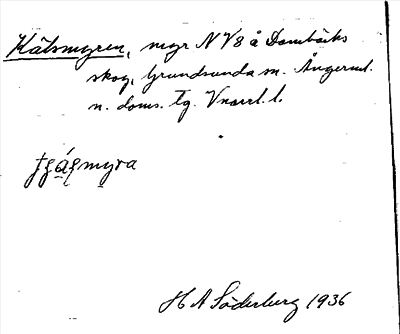 Kälsmyren, myr N V8 å Dombäcks
skog, Grundsunda sn. Ångerml.
n. doms. Tg. Vnorrl. l.
myra
H A Söderberg 1936